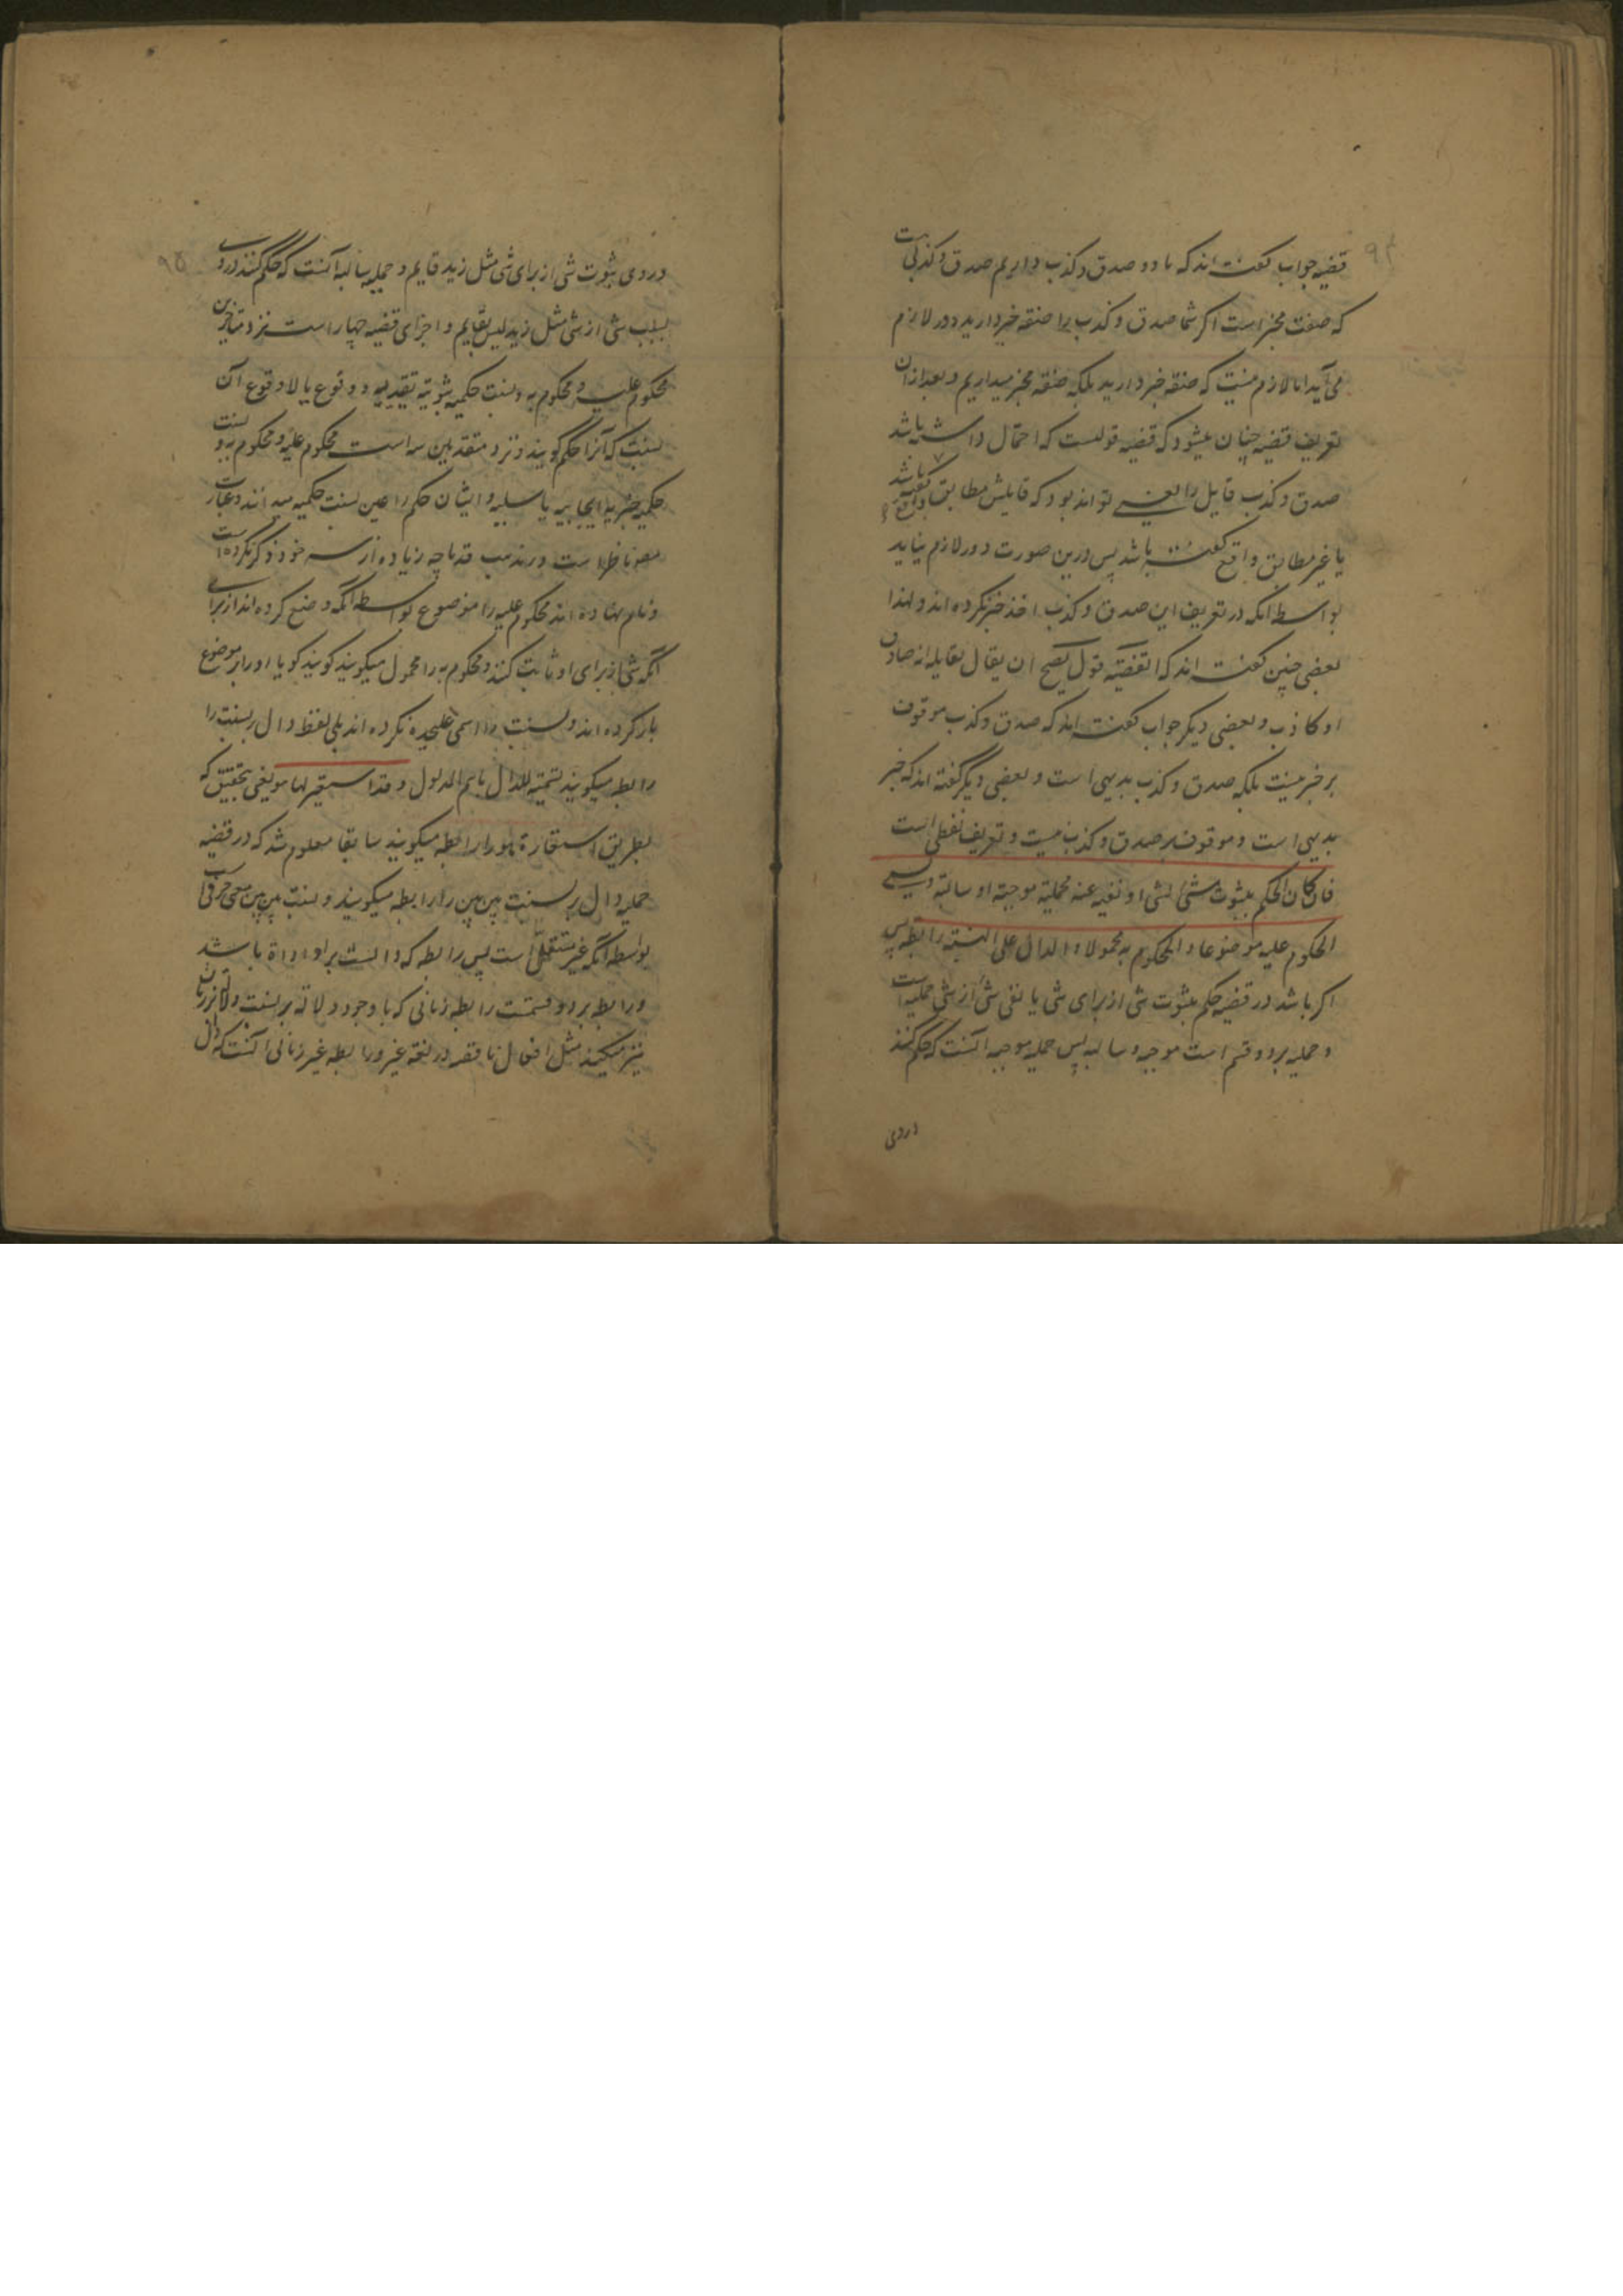 ۹۴
قضیه جواب گفته اند که ما دو صدق و کذب داریم صدق و کذبی است
که صفت مخبر است اگر شما صدق و کذب را صفة خبر دارید دور لازم
می آید اما لازم نیست که صفة خبر دارید بلکه صفة مخبر میداریم و بعد از آن
تعریف قضیه چنان میشود که قضیه قولیست که احتمال داشته باشد
صدق و کذب قایل را یعنی تواند بود که قایلش مطابق واقع گفته باشد
یا غیر مطابق واقع گفته باشد پس درین صورت دور لازم نیاید
بواسطه آنکه در تعریف این صدق و کذب اخذ خبر نکرده اند و لهذا
بعضی چنین گفته اند که القضیة قول یصح ان یقال لقایله انه صادق
او کاذب و بعضی دیگر جواب گفته اند که صدق و کذب موقوف
بر خبر نیست بلکه صدق و کذب بدیهی است و بعضی دیگر گفته اند که خبر
بدیهی است و موقوف بر صدق و کذب نیست و تعریف لفظی است
فان کان الحکم بثبوت شئ لشئ او نفیه عنه فحملیة موجبة او سالبة ویسمی
المحکوم علیه موضوعا و المحکوم به محمولا و الدال علی النسبة رابطه پس
اگر باشد در قضیه حکم بثبوت شی از برای شی یا نفی شئ از شی حملیه است
و حملیه بر دو قسم است موجبه و سالبه پس حملیه موجبه آنست که حکم کنند
در وی
۹۵
در وی بثبوت شی از برای شی مثل زید قایم و حملیه سالبه آنست که حکم کنند در وی
بسلب شی از شی مثل زید لیس بقایم و اجزای قضیه چهار است نزد متاخرین
محکوم علیه و محکوم به و نسبت حکمیه ثبوتیة تقییدیه و وقوع یا لا وقوع آن
نسبت که آنرا حکم گویند و نزد متقدمین سه است محکوم علیه و محکوم به و نسبت
حکمیه خبریه ایجابیه یا سلبیه و ایشان حکم را عین نسبت حکمیه میدانند و عبارت
مصنف ناظر است در مذهب قدما چه زیاده از سه خود ذکر نکرده است
و نام نهاده اند محکوم علیه را موضوع بواسطه آنکه وضع کرده اند از برای
آنکه شی از برای او ثابت کنند و محکوم به را محمول میگویند گویند گویا او را بر موضوع
بار کرده اند و نسبت را اسمی علیحده نکرده اند بلی لفظ دال بر نسبت را
رابطه میگویند تسمیة للدال باسم المدلول و قد استعیر لها هو یعنی بتحقیق که
بطریق استعارة هو را رابطه میگویند سابقا معلوم شد که در قضیه
حملیه دال بر نسبت بین بین را رابطه میگویند و نسبت بین بین معنی حرفی است
بواسطه آنکه غیر مستقل است پس رابطه که دالست بر او اداة باشد
و رابطه بر دو قسمست رابطه زمانی که با وجود دلالة بر نسبت دلالة بر زمان
نیز میکند مثل افعال ناقصه در لغة عرب و رابطه غیر زمانی آنست که دال